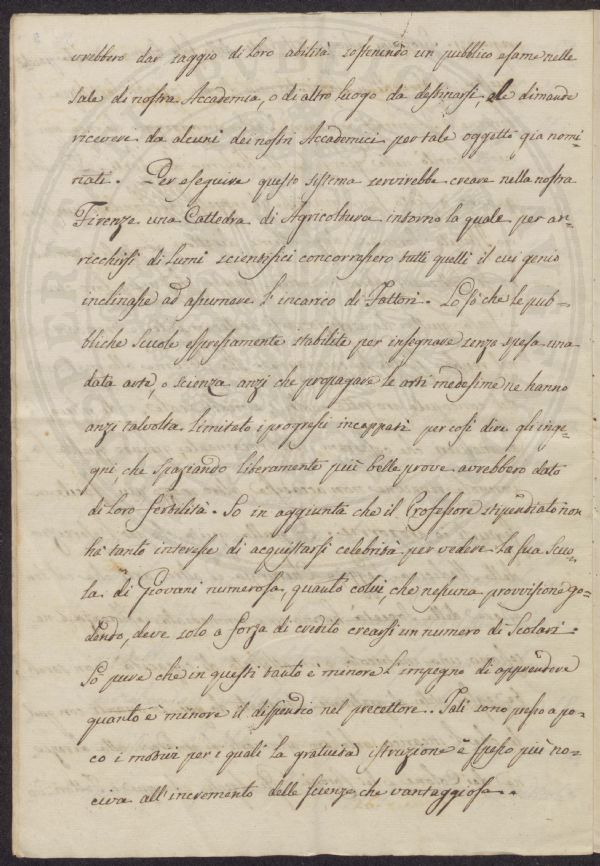 vrebbero dar saggio di loro abilità sostenendo un pubblico esame nelle
sale di nostra Accademia, o di altro luogo da destinarsi, e le dimande
ricevere da alcuni dei nostri Accademici per tale oggetto già nomi-
nati. Per eseguire questo sistema servirebbe creare nella nostra
Firenze una Cattedra di Agricoltura intorno la quale per ar-
ricchirsi di Lumi scientifici concorressero tutti quelli il cui genio
inclinasse ad assumere l'incarico di Fattori. Lo so che le pub-
bliche Scuole espressamente stabilite per insegnare senza spesa una
data arte, o scienza anzi che propagare le arti medesime ne hanno
anzi talvolta limitato i progressi incappati per così dire gl'inge-
gni, che spaziando liberamente più belle prove avrebbero dato
di loro fertilità. So in aggiunta che il Professore stipendiato non
ha tanto interesse di acquistarsi celebrità per vedere la sua Scuo-
la di Giovani numerosa, quanto colui, che nessuna provvisione go-
dendo, deve solo a forza di credito crearsi un numero di Scolari.
So pure che in questi tanto è minore l'impegno di apprendere
quanto è minore il dispendio nel precettore.. Tali sono presso a po-
co i motivi per i quali la gratuita istruzione è spesso più no-
civa all'incremento delle scienze che vantaggiosa..